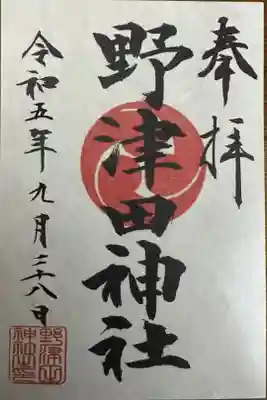 奉拝
野津田神社
令和五年九月二十八日
野津田
神社之印